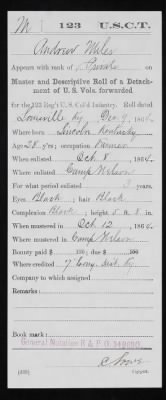 M | 123 | U.S.C.T.
Andrew Miles
Appears with rank of Private on
Muster and Descriptive Roll of a Detach-
ment of U. S. Vols. forwarded
for the 123 Reg't U. S. Col'd Infantry. Roll dated
Louisville Ky Dec 9, 1864.
Where born Lincoln Kentucky
Age 28 y'rs; occupation Farmer
When enlisted Oct 8, 1864.
Where enlisted Camp Nelson
For what period enlisted 3 years.
Eyes Black; hair Black
Complexion Black; height 5 ft. 8 in.
When mustered in Oct 12, 1864.
Where mustered in Camp Nelson
Bounty paid $ 100; due $ 100
Where credited 7" Cong. Dist. Ky.
Company to which assigned
Remarks:
Book mark:
General Notation R & P O
(339) Copyist.